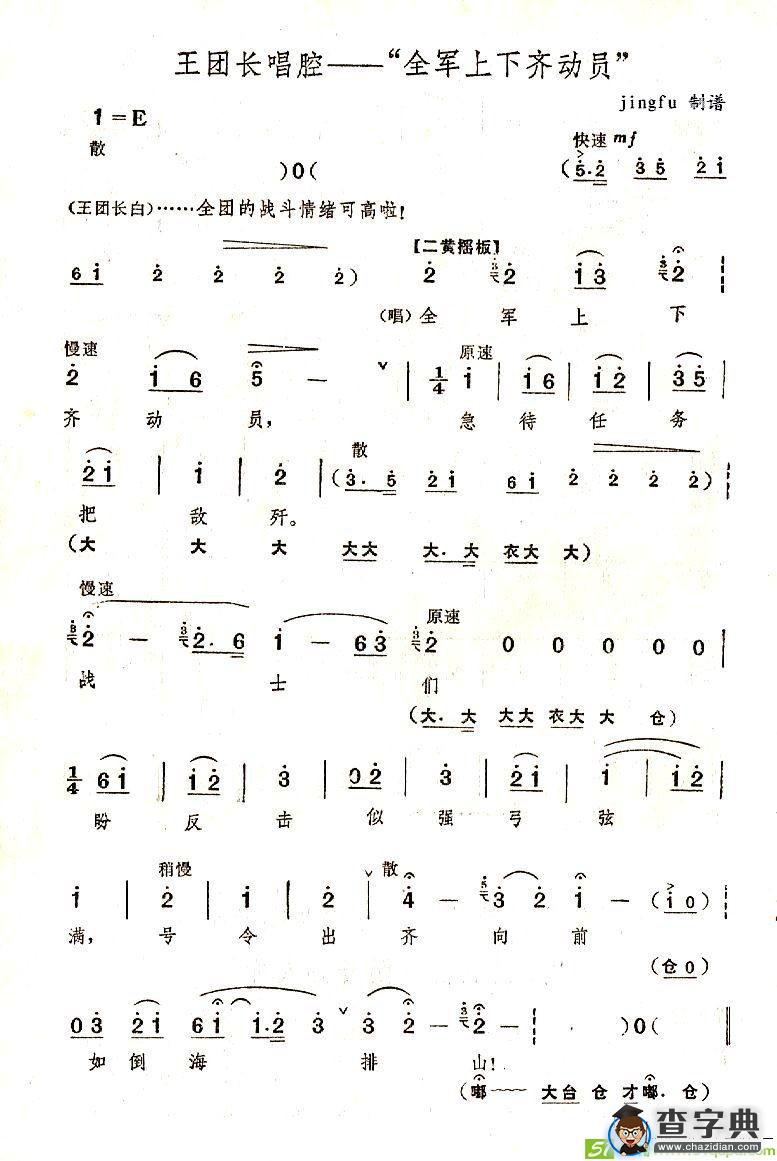 王团长唱腔——“全军上下齐动员”
jingfu 制谱
1=E
快速 mf
散
)0(
(5·2 35 21
(王团长白)……全团的战斗情绪可高啦!
【二黄摇板】
61 2 2 2 2) 2 2 13 2
(唱)全 军 上 下
慢速 原速
2 16 5 — ∨ 1/4 1 | 16 | 12 | 35 |
齐 动 员, 急 待 任 务
散
21 | 1 | 2 | (3·5 21 61 2 2 2 2)
把 敌 歼。
(大 大 大 大大 大·大 衣大 大)
慢速 原速
2 — 2·6 1 — 63 2 0 0 0 0 0 |
战 士 们
(大·大 大大 衣大 大 仓)
1/4 61 | 12 | 3 | 02 | 3 | 21 | 1 | 12 |
盼 反 击 似 强 弓 弦
稍慢 ∨散
1 | 2 | 1 | 2 | 4 — 3 2 1 — (10)
满, 号 令 出 齐 向 前
(仓0)
03 21 61 1·2 3 ∨ 3 2 — 2 )0( ‖
如 倒 海 排 山!
(嘟—— 大台 仓 才嘟·仓)
查字典
chazidian.com